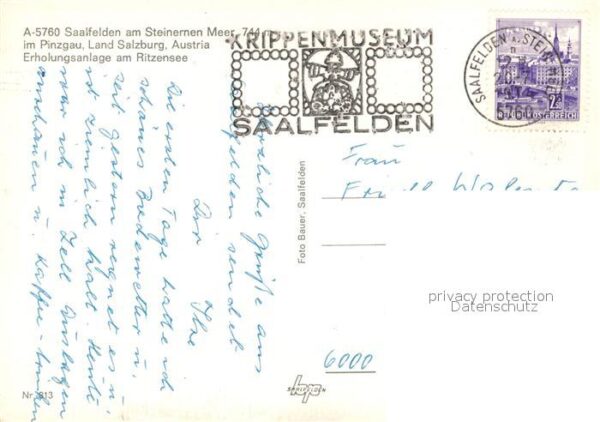 A-5760 Saalfelden am Steinernen Meer, 744 m
im Pinzgau, Land Salzburg, Austria
Erholungsanlage am Ritzensee
KRIPPENMUSEUM
SAALFELDEN
SAALFELDEN A. STEIN
2.50
REPUBLIK ÖSTERREICH
Herzliche Grüße aus
Saalfelden sendet
Dir
Ihre
Die ersten Tage hatte ich
schönes Badewetter u.
seit gestern regnet es u.
ist ziemlich kalt. Heute
war ich in Zell Auslagen
anschauen u. Kaffee-trinken
Foto Bauer, Saalfelden
Frau
6000
privacy protection
Datenschutz
SAALFELDEN
Nr. 813